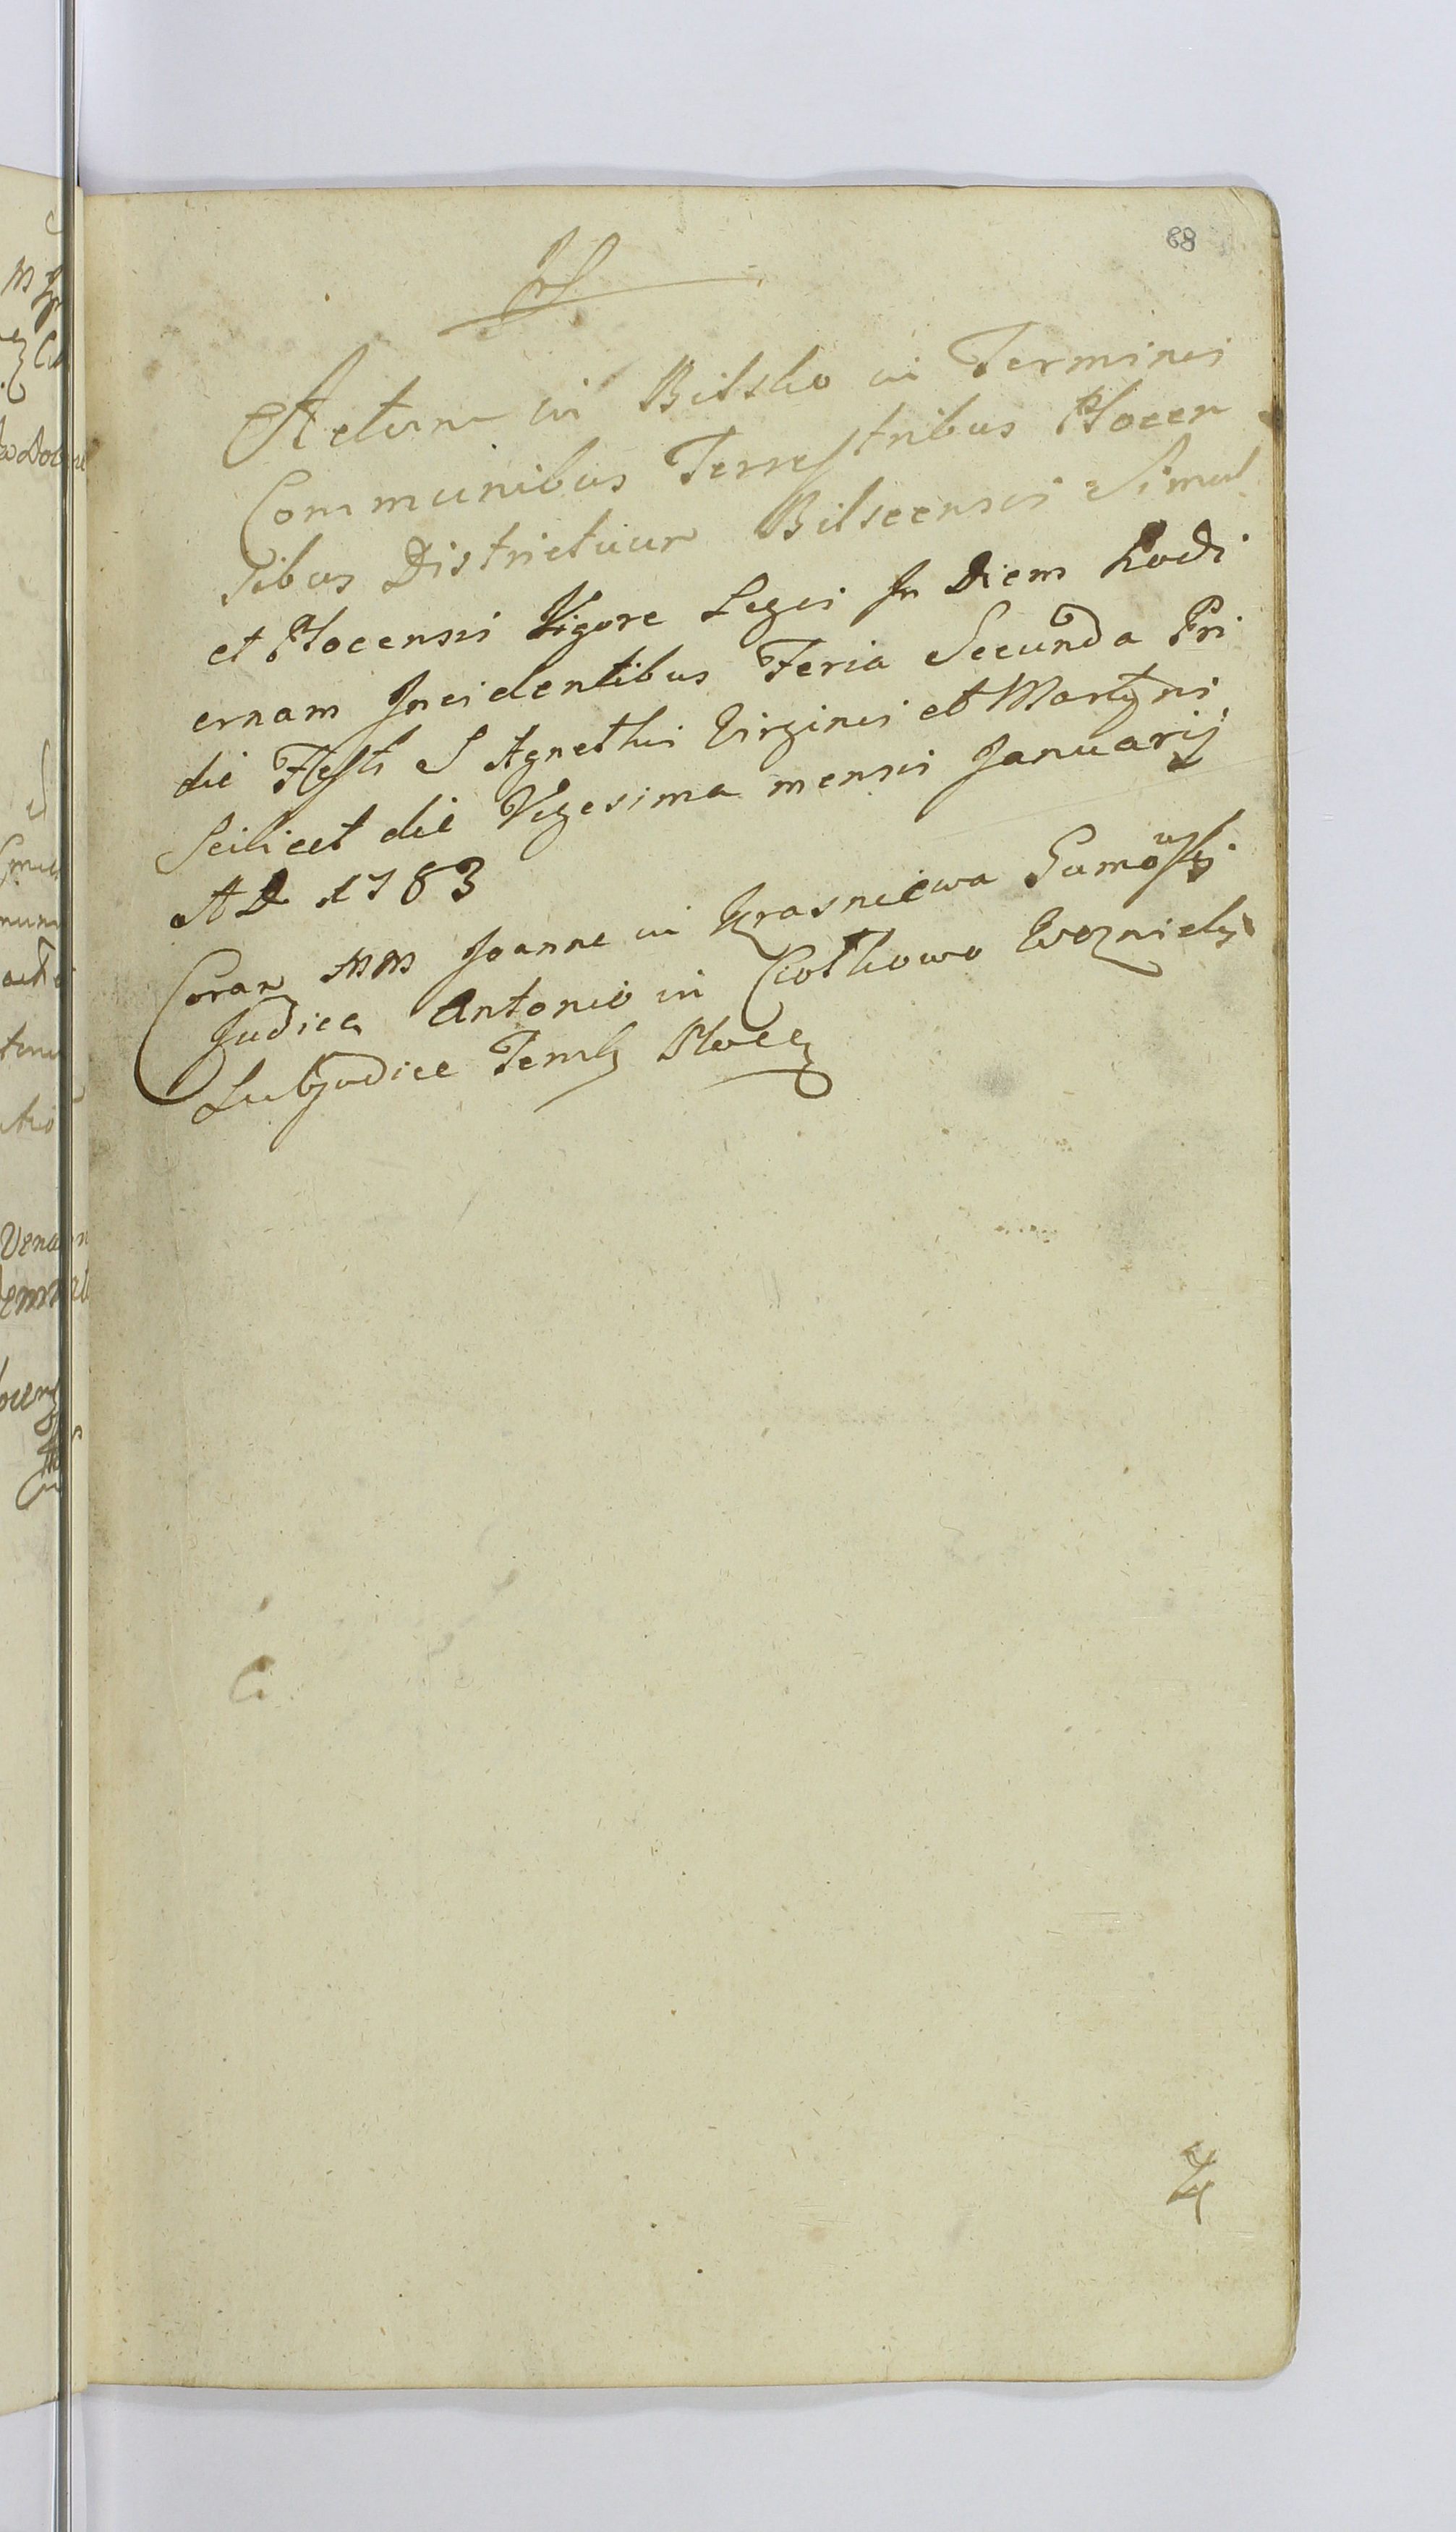 68
Actum in Bilsko in Terminis
Communibus Terrestribus Plocen
sibus Districtuum Bilscensis Simul
et Plocensis Vigore Legis In Diem hodi
ernam Incidentibus Feria Secunda Pri
die Festi S Agnethis Virginis et Martyris
Scilicet die Vigesima mensis Januarij
AD 1783
Coram MM Joanne in Krasniewa Gumowski
Judice Antonio in Ciotkowo
Subjudice Plocen